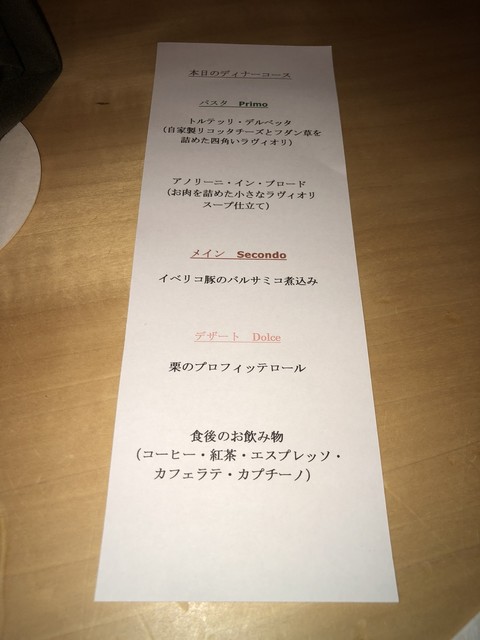 本日のディナーコース
パスタ Primo
トルテッリ・デルベッタ
(自家製リコッタチーズとフダン草を
詰めた四角いラヴィオリ)
アノリーニ・イン・ブロード
(お肉を詰めた小さなラヴィオリ
スープ仕立て)
メイン Secondo
イベリコ豚のバルサミコ煮込み
デザート Dolce
栗のプロフィッテロール
食後のお飲み物
(コーヒー・紅茶・エスプレッソ・
カフェラテ・カプチーノ)